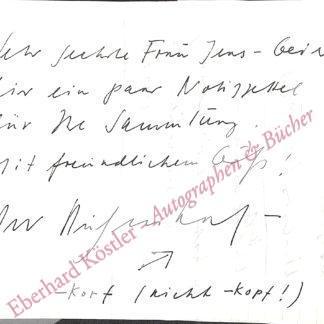 Sehr geehrte Frau Jens-
hier ein paar Notizzettel
für Ihre Sammlung.
Mit freundlichem Gruß!
Ihr
-korf (nicht -kopf!)
Eberhard Köstler - Autographen & Bücher